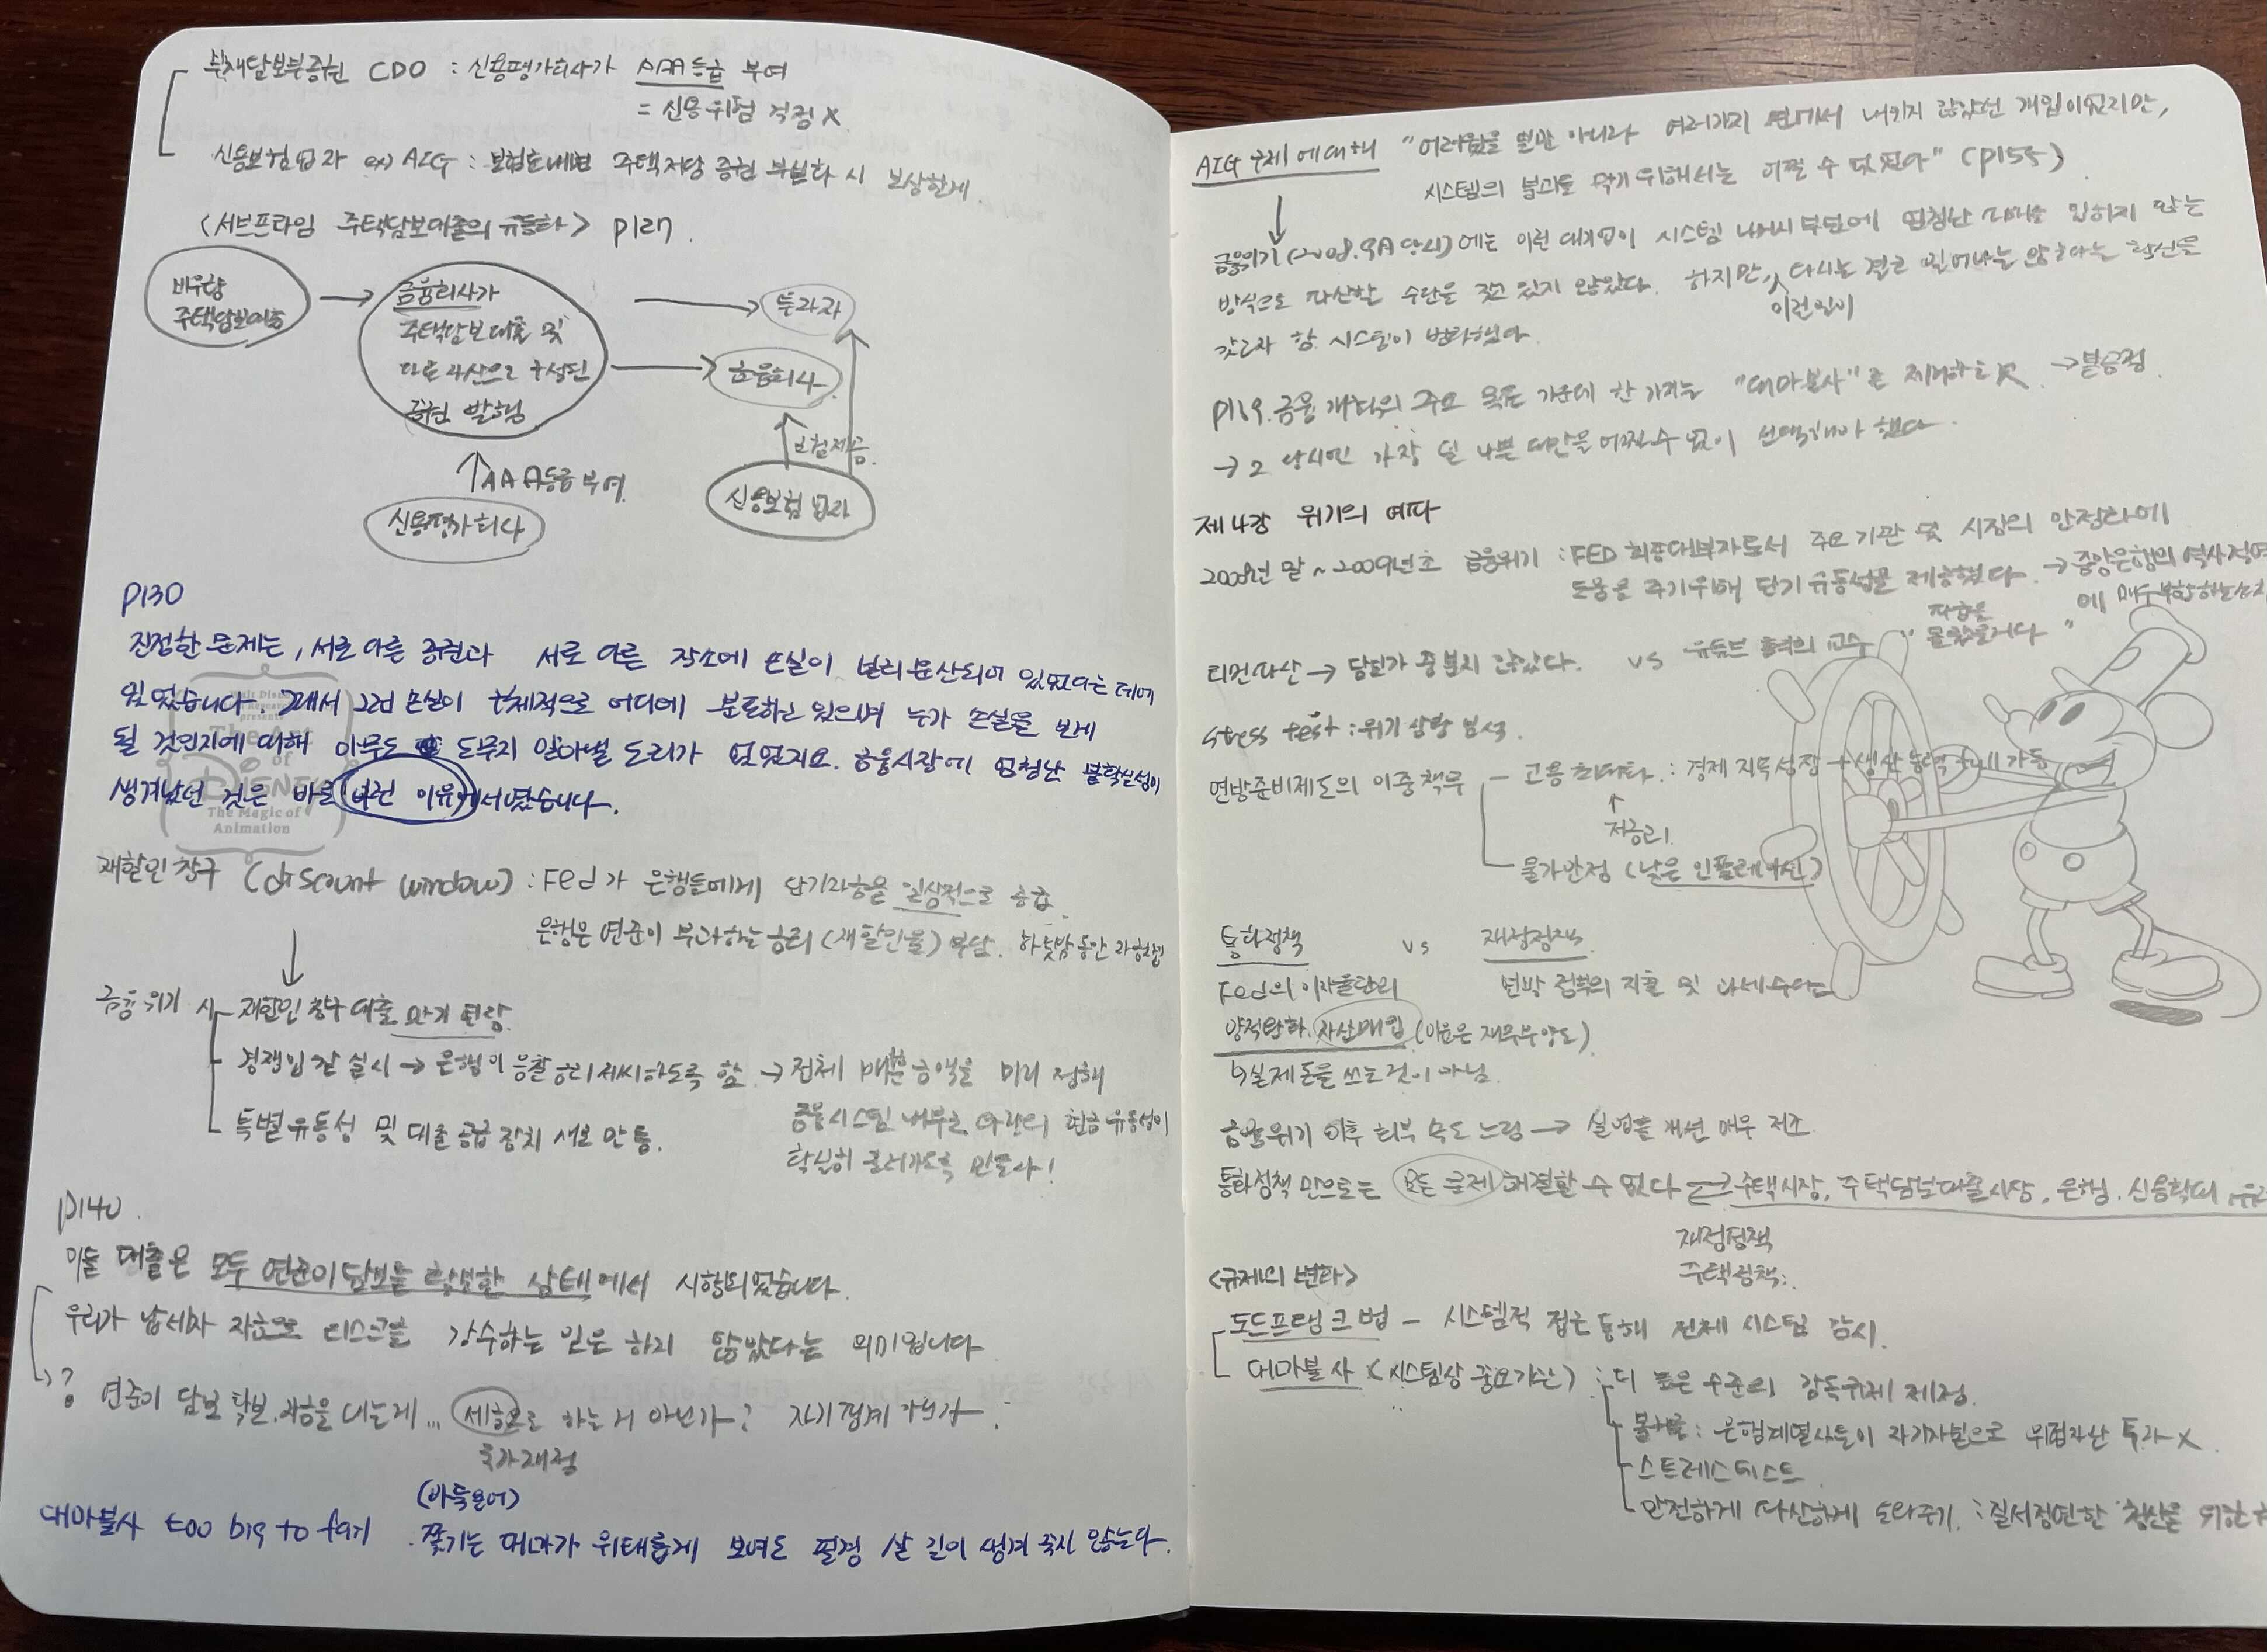 부채담보부증권 CDO : 신용평가회사가 AAA등급 부여
= 신용위험 걱정 X
신용보험업자 ex) AIG : 보험료내면 주택저당 증권 부실화 시 보상할게.
<서브프라임 주택담보대출의 유동화> p127.
비우량
주택담보대출
금융회사가
주택담보대출 및
다른 자산으로 구성된
증권 발행
투자자
금융회사
보험제공.
AAA등급 부여.
신용평가회사
신용보험 업자
p130
진정한 문제는, 서로 다른 증권과 서로 다른 장소에 손실이 널리 분산되어 있었다는 데에
있었습니다. 그래서 그런 손실이 구체적으로 어디에 분포하고 있으며 누가 손실을 보게
될 것인지에 대해 아무도 도무지 알아낼 도리가 없었지요. 금융시장에 엄청난 불확실성이
생겨났던 것은 바로 이런 이유에서였습니다.
Walt Disney
presents
The Art
of
DISNEY
The Magic of
Animation
재할인 창구 (discount window) : Fed가 은행들에게 단기자금을 일상적으로 공급.
은행은 연준이 부과하는 금리 (재할인율) 부담. 하룻밤 동안
금융위기 시 재할인 창구 대출 만기 연장.
경쟁입찰 실시 → 은행이 응찰 금리 제시하도록 함. → 전체 금액을 미리 정해
금융시스템 내부로 현금 유동성이
특별유동성 및 대출 공급 장치 새로 만듦.
확실히 흘러가도록 만들다!
p140.
이들 대출은 모두 연준이 담보를 확보한 상태에서 시행되었습니다.
우리가 납세자 자금으로 리스크를 감수하는 일은 하지 않았다는 의미입니다
? 연준이 담보 확보. 자금을 대는게 ... 세금으로 하는 거 아닌가?
국가재정
(바둑용어)
대마불사 too big to fail . 쫓기는 대마가 위태롭게 보여도 필경 살 길이 생겨 죽지 않는다.
AIG 구제에 대해 "어려웠을 뿐만 아니라 여러가지 면에서 내키지 않았던 개입이었지만,
시스템의 붕괴를 막기 위해서는 어쩔 수 없었다" (p155)
금융위기 (2008. 9月 당시)에는 이런 대기업이 시스템 나머지 부분에 엄청난 피해를 입히지 않는
방식으로 파산할 수단을 갖고 있지 않았다. 하지만, 다시는 결코 일어나는 않아야는 확신을
이런일이
갖고자 함. 시스템이
p159. 금융 개혁의 주요 목표 가운데 한 가지는 "대마불사"를 제거하는 것 → 불공정.
→ 그 당시엔 가장 덜 나쁜 대안을 어쩔 수 없이 선택해야 했다.
제 4강 위기의 여파
2008년 말 ~ 2009년초 금융위기 : FED 최종대부자로서 주요 기관 및 시장의 안정화에
도움을 주기 위해 단기 유동성을 제공했다. → 중앙은행의 역사적
에 매우 부합하는
리먼파산 → 담보가 충분치 않았다. vs 유튜브 출연의 교수 "
파산을
몰랐을거다 "
stress test : 위기 상황 분석.
연방준비제도의 이중책무 - 고용 최대화. : 경제 지속성장 + 생산 능력 가동
↑
저금리
물가안정 (낮은 인플레이션)
통화정책 vs 재정정책.
Fed의 이자율관리 연방 정부의 지출 및
양적완화. 자산매입 (이윤은 재무부 양도).
↳ 실제 돈을 쓰는 것이 아님.
금융위기 이후 회복 속도 느림 → 실업률 개선 매우 저조
통화정책 만으로는 모든 문제 해결할 수 없다 ⇄ 주택시장, 주택담보대출시장, 은행. 신용확대,
재정정책
주택정책.
<규제의 변화>
도드프랭크법 - 시스템적 접근 통해 전체 시스템 감시.
대마불사 X (시스템상 중요기관) : 더 높은 수준의 감독규제 제정.
볼커룰 : 은행계열사들이 자기자본으로 위험자산 투자 X.
스트레스 테스트
안전하게 파산하게 도와주기. : 질서정연한 청산을 위한